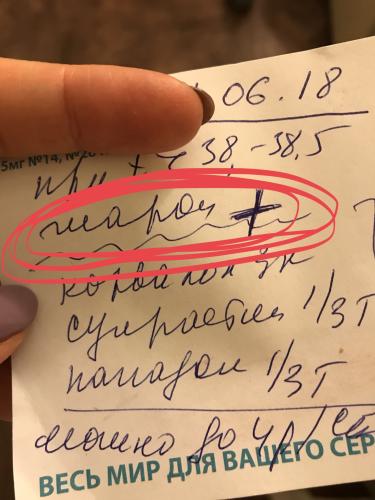 06.18
5мг №14, №28
при t > 38,-38,5
жарон +
корвалол 3к
супрастин 1/3т
панадол 1/3т
можно до 4р/сут
ВЕСЬ МИР ДЛЯ ВАШЕГО СЕР